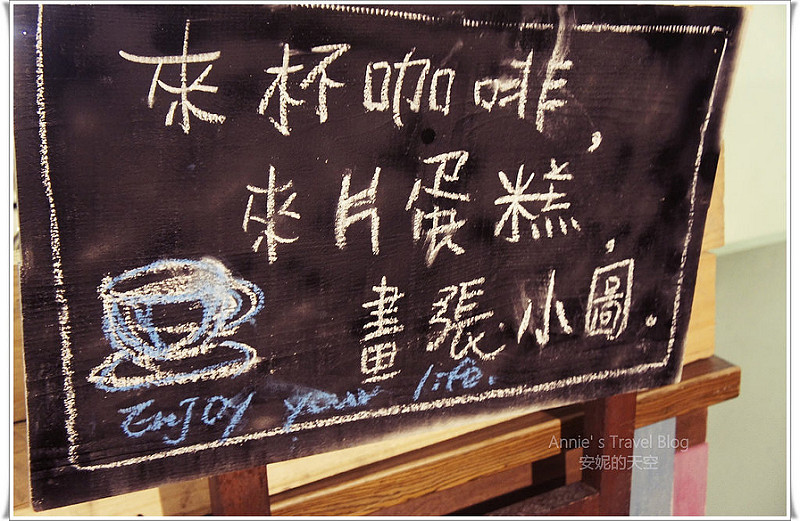 來杯咖啡,
來片蛋糕,
畫張小圖.
ENJOY your life.
Annie's Travel Blog
安妮的天空